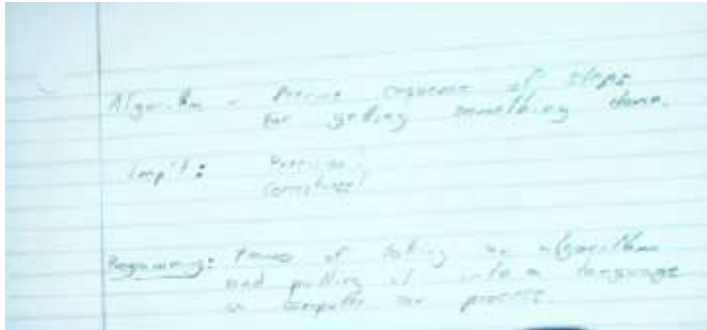 Algorithm - Precise sequence of steps
for getting something done.
Programming: Process of taking an algorithm
and putting it into a language
a computer can process.